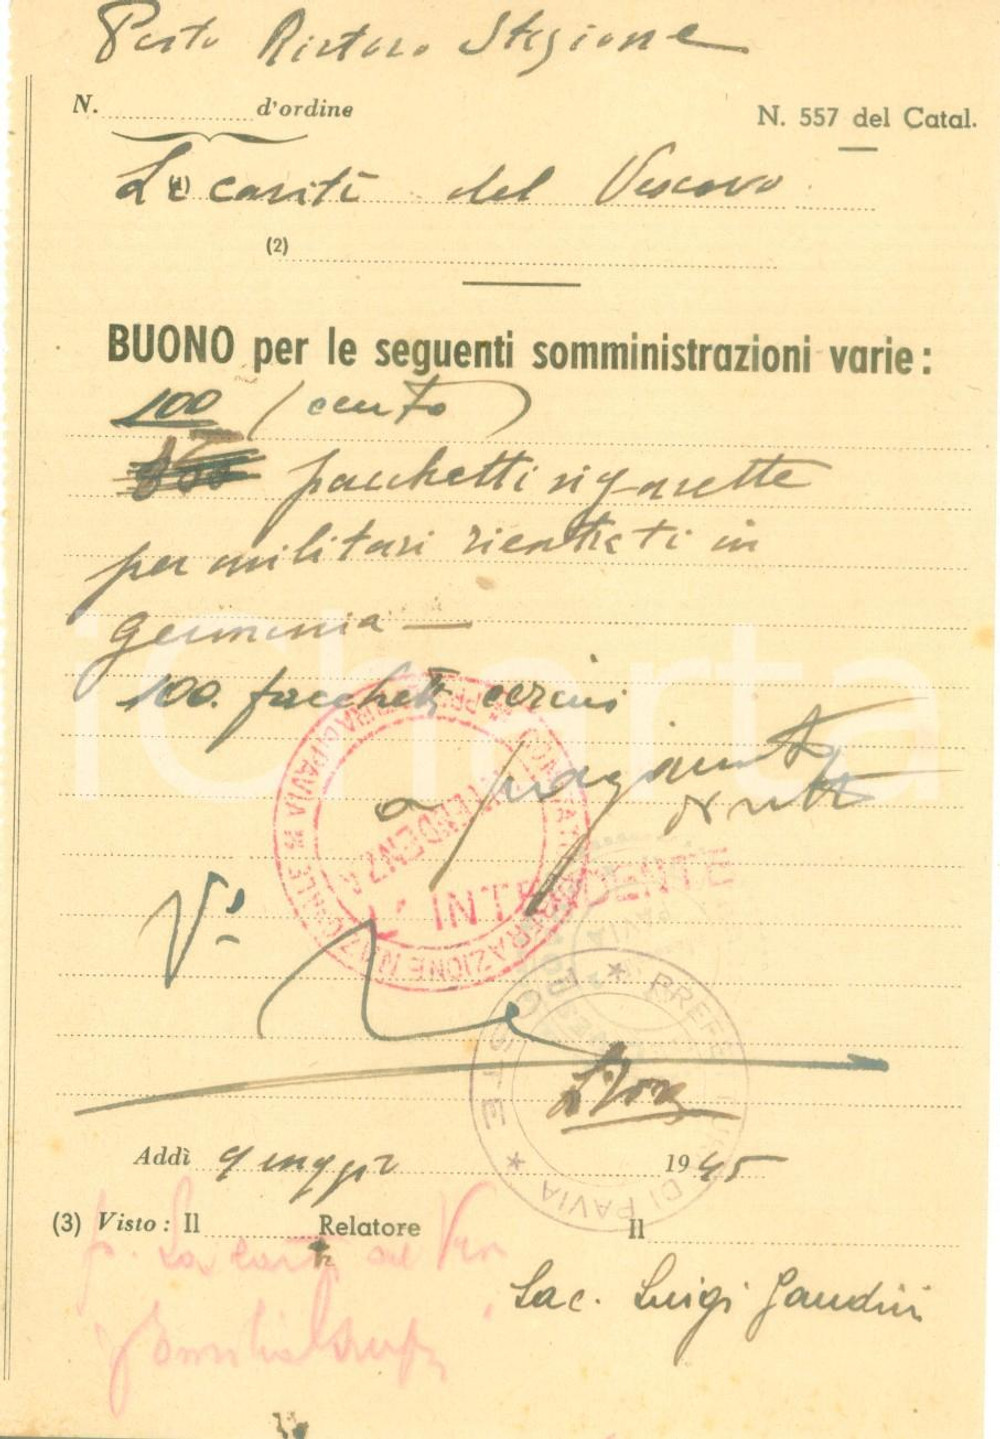 Posto Ristoro Stazione
N. .................... d'ordine
N. 557 del Catal.
(1) La carità del Vescovo
(2)
BUONO per le seguenti somministrazioni varie:
100 (cento)
pacchetti sigarette
per militari rientrati in
Germania —
100. pacchetti cerini
a pagamento
V°
L'INTENDENTE
PREFE
DI PAVIA
Addì 9 maggio 1945
(3) Visto: Il .................... Relatore
Il
p. La carità del Ves
Sac. Luigi Gandini
iCharta